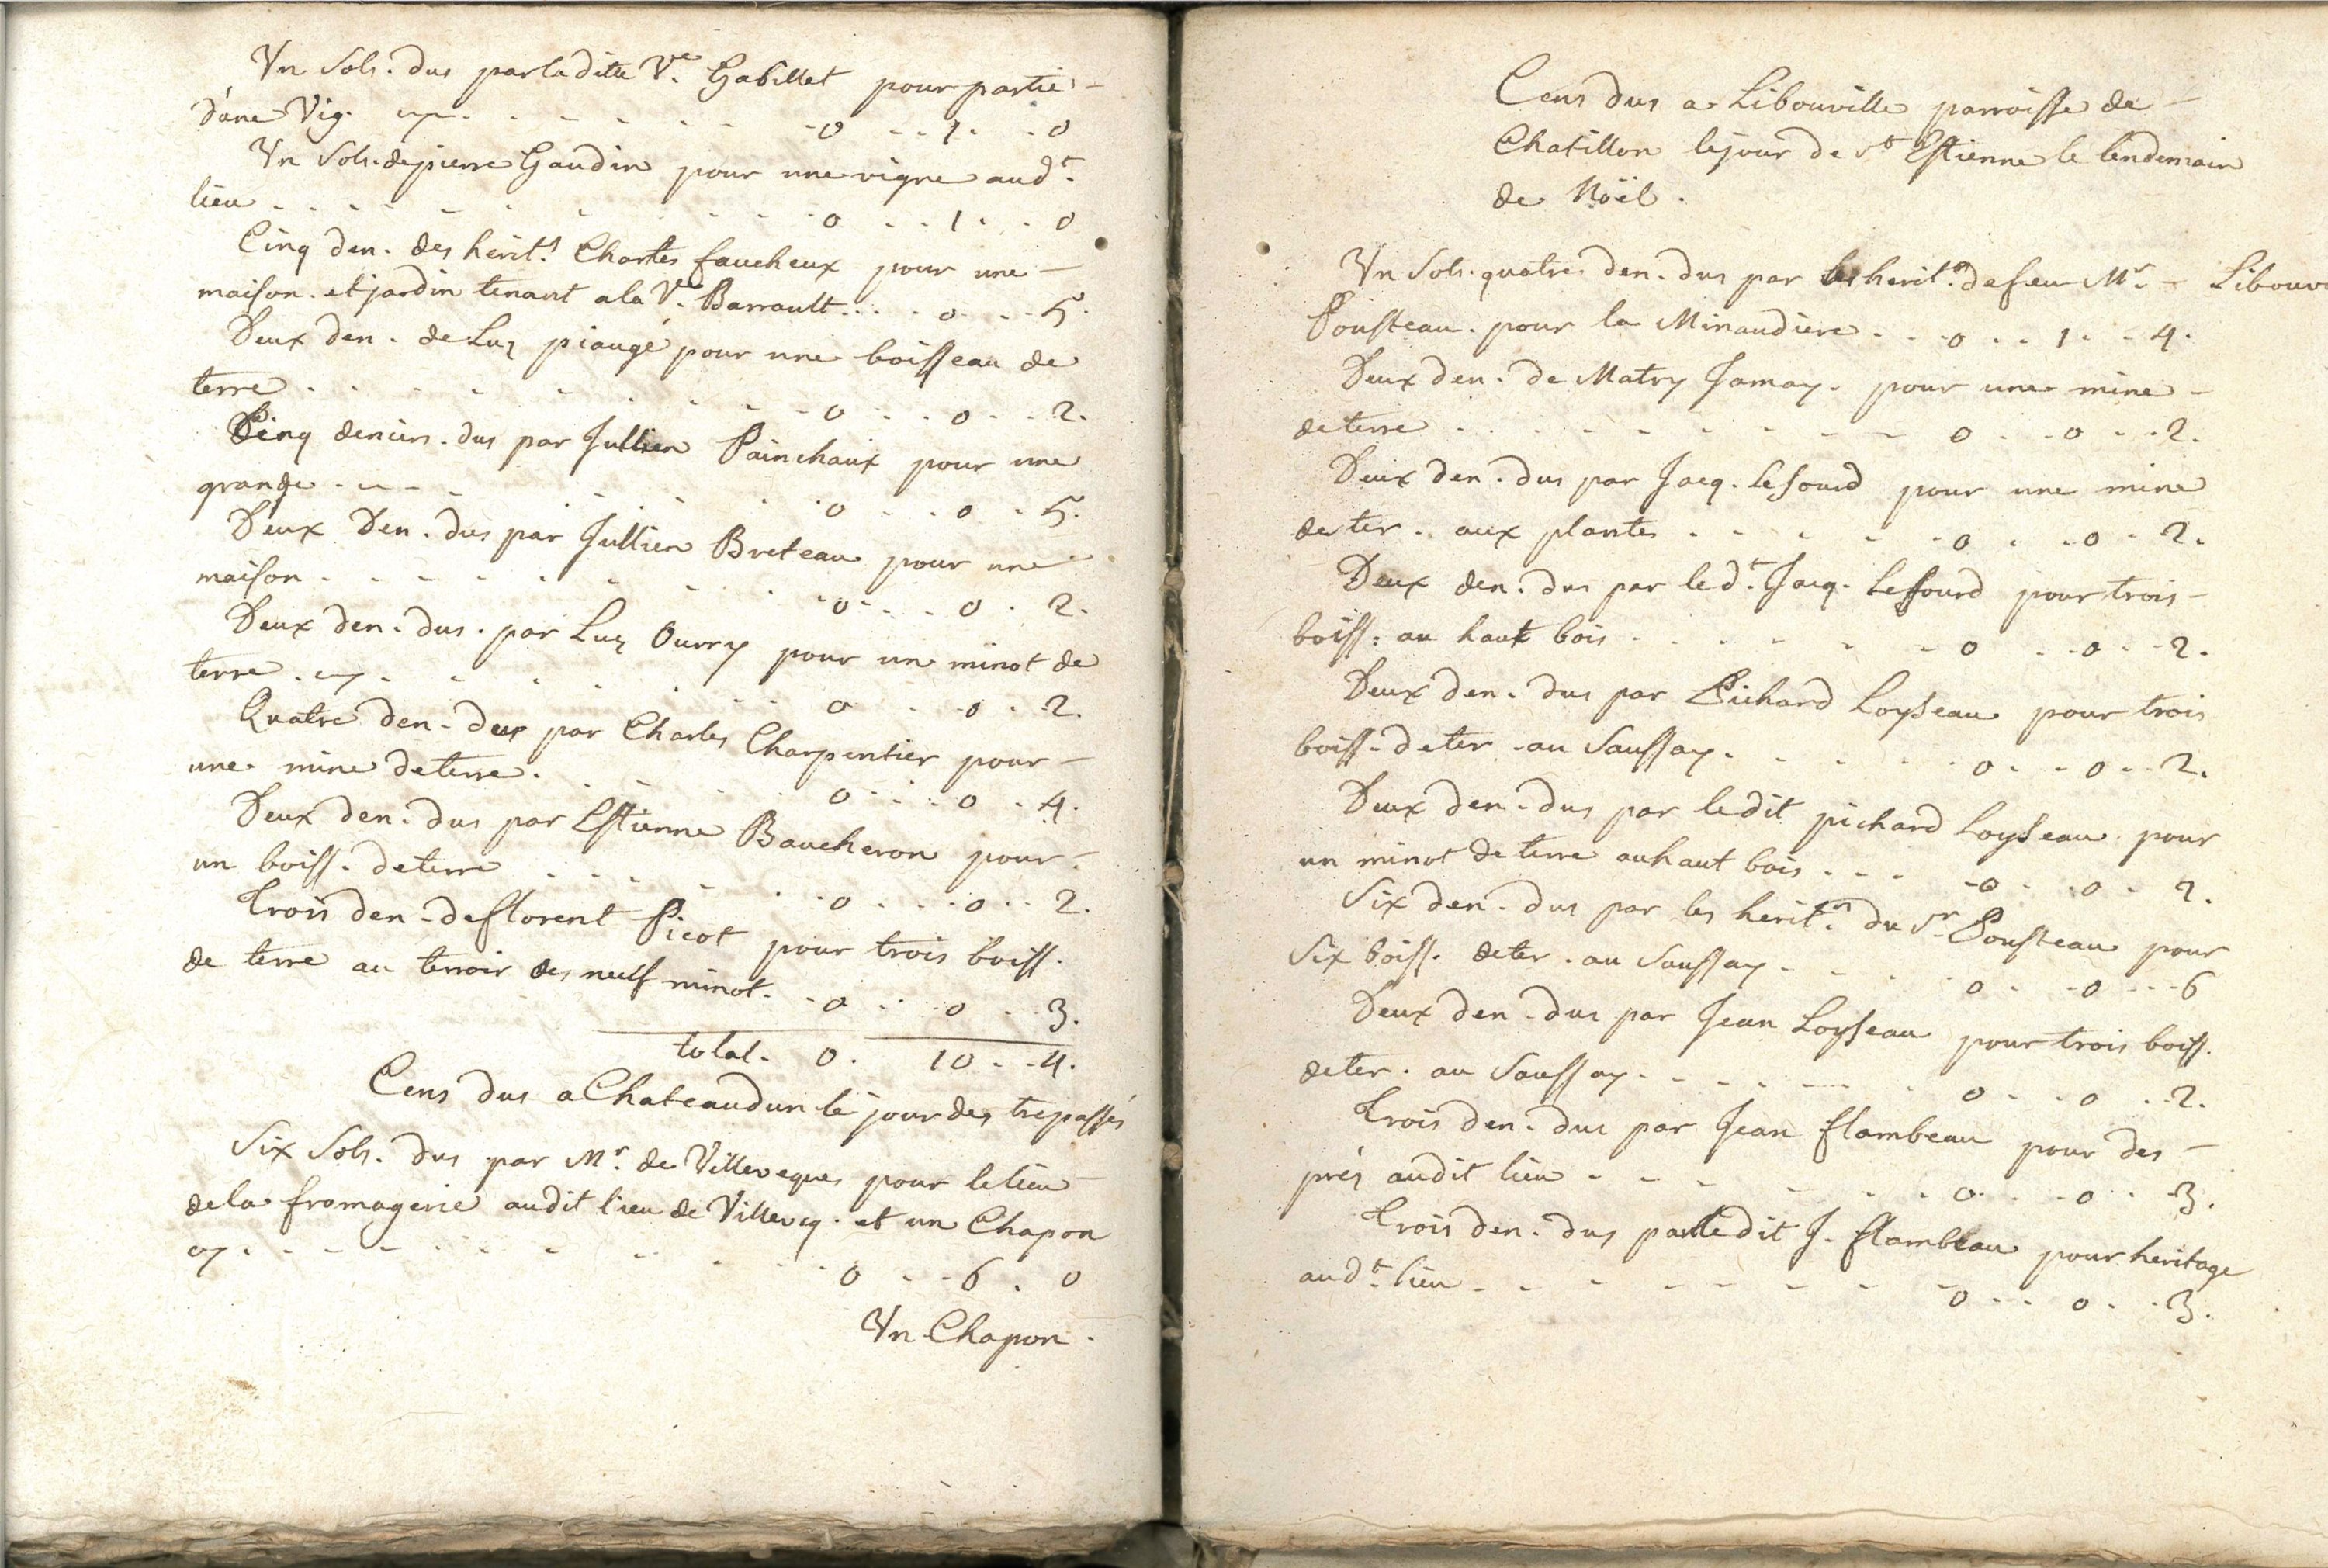 Vn Sols. dus par la ditte Ve. Gabillet pour partie -
d'une Vig. - - - 0 - - 1 - - 0
Vn Sols de pierre Gaudin pour une vigne aud.t
lieu - - - 0 - - 1 - - 0
Cinq den. des herit.s Charles faucheux pour une -
maison. et jardin tenant a la Ve. Barrault . . . 0 - - 5.
Deux den. de Luz piaugé pour une boisseau de
terre - - - 0 - - 0 - - 2.
Cinq deniers. dus par Jullien Painchaux pour une
grange - - - 0 - - 0 - 5.
Deux Den. dus par Jullien Breteau pour une
maison - - - 0 - - 0 - 2.
Deux den. dus. par Luz Ourry pour un minot de
terre - - - 0 - - 0 - 2.
Quatre den. dus par Charles Charpentier pour -
une mine de terre. - - 0 - - 0 - 4.
Deux den. dus par Estienne Baucheron pour -
un boiss. de terre - - - 0 - - 0 - - 2.
Trois den. de florent Picot pour trois boiss.
de terre au terroir des neuf minot. - 0 - - 0 - - 3.
total. 0. 10 - - 4.
Cens dus a Chateaudun le jour des trepassés
Six Sols. dus par Mr. de Villeveques pour le lieu
de la fromagerie audit lieu de Villeveq. et un Chapon
cy - - - 0 - - 6 . 0
Vn Chapon.
Cens dus a Libouville parroisse de -
Chatillon le jour de st Estienne le lendemain
de Noël.
Vn Sols. quatre den. dus par les herit.rs de feu Mr. - Libouvi
Pousteau. pour la Minaudiere - - 0 - - 1 - - 4.
Deux den. de Matry Jamay. pour une mine -
de terre - - - 0 - - 0 - - 2.
Deux den. dus par Jacq. Lesourd pour une mine
de ter. aux plantes - - - 0 - - 0 - 2.
Deux den. dus par led.t Jacq. Lessourd pour trois -
boiss. au haut bois - - - 0 - - 0 - - 2.
Deux den. dus par Pichard Loyseau pour trois
boiss. de ter. au Saussay. - - - 0 - - 0 - - 2.
Deux den. dus par ledit pichard Loyseau pour
un minot de terre au haut bois - - - 0 - - 0 - 2.
Six den. dus par les herit.rs du Sr Pousteau pour
Six boiss. de ter. au Saussay - - - 0 - - 0 - - 6
Deux den. dus par Jean Loyseau pour trois boiss.
de ter. au Saussay - - - 0 - - 0 - - 2.
Trois den. dus par Jean flambeau pour des -
prés audit lieu - - - 0 - - 0 - - 3.
Trois den. dus par ledit J. flambeau pour heritage
aud.t lieu - - - 0 - - 0 - - 3.